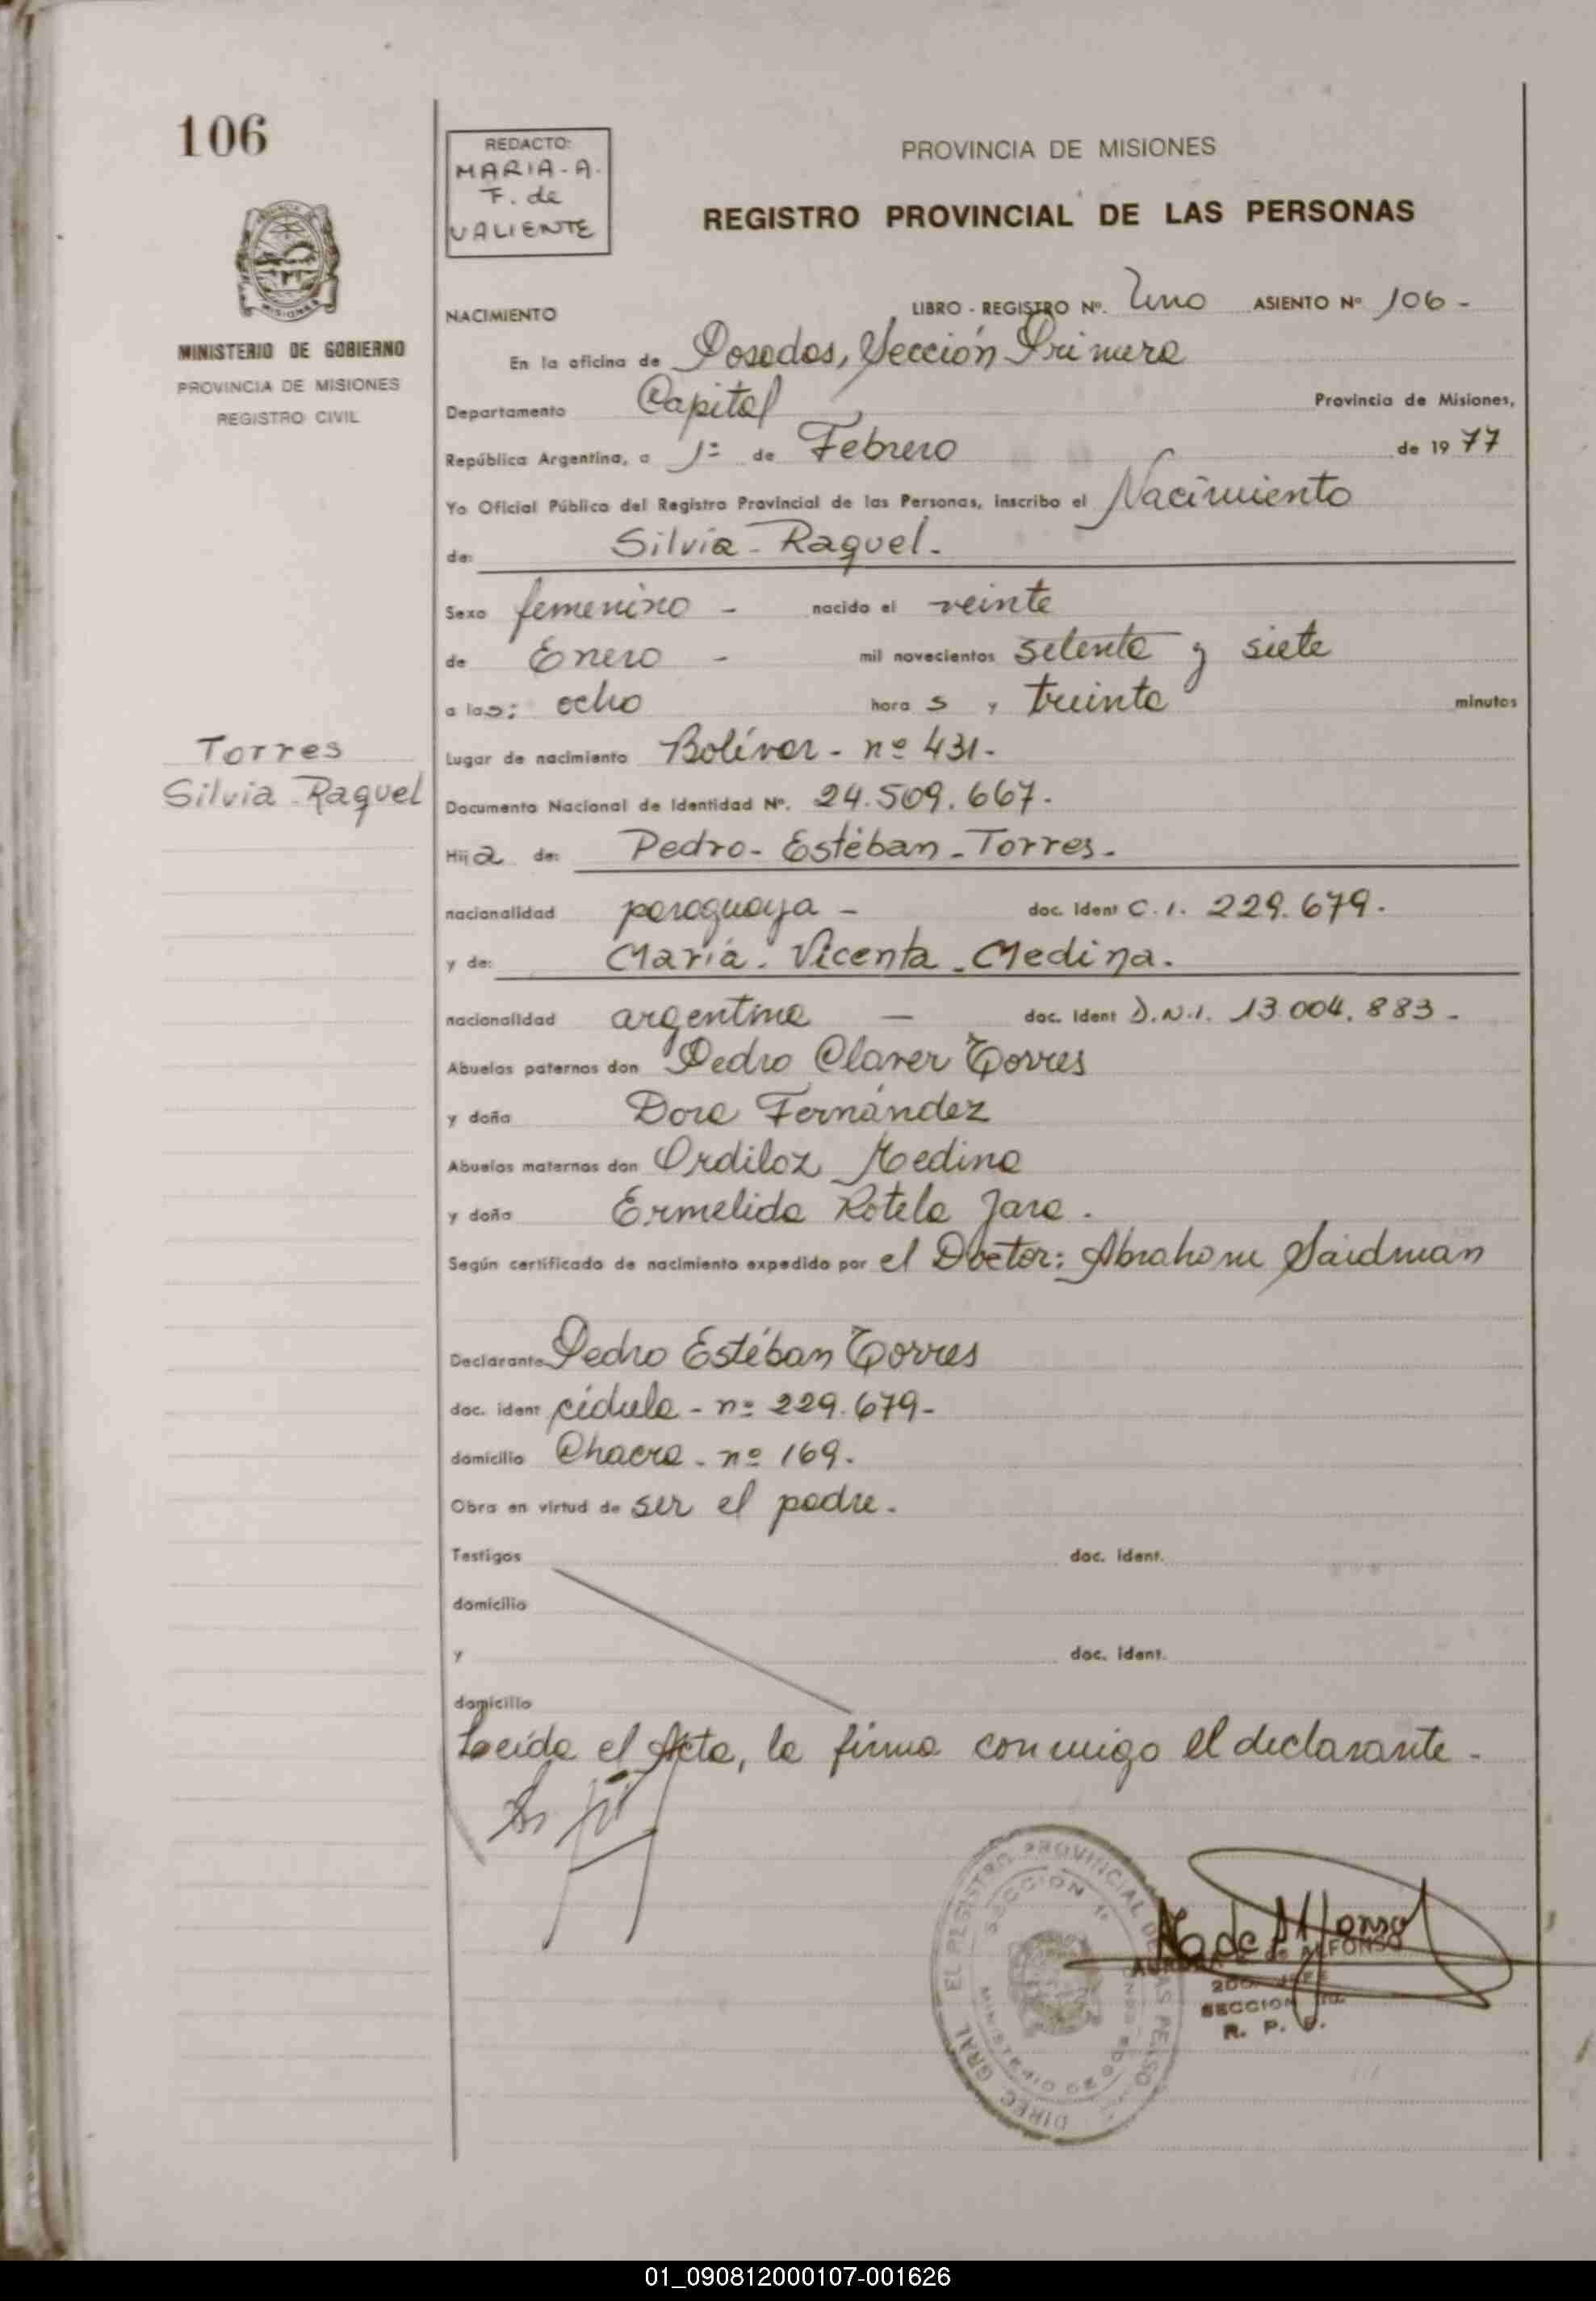 106
REDACTO:
MARIA-A.
F. de
VALIENTE
PROVINCIA DE MISIONES
REGISTRO PROVINCIAL DE LAS PERSONAS
MISIONES
MINISTERIO DE GOBIERNO
PROVINCIA DE MISIONES
REGISTRO CIVIL
NACIMIENTO LIBRO - REGISTRO Nº. Uno ASIENTO Nº 106 -
En la oficina de Posadas, Sección Primera
Departamento Capital Provincia de Misiones,
República Argentina, a 1º de Febrero de 19 77
Yo Oficial Público del Registro Provincial de las Personas, inscribo el Nacimiento
de: Silvia - Raquel.
Sexo femenino - nacido el veinte
de Enero - mil novecientos setenta y siete
a las: ocho hora s y treinta minutos
Torres
Silvia - Raquel
Lugar de nacimiento Bolívar - nº 431-
Documento Nacional de Identidad Nº. 24.509.667.
Hija de: Pedro - Estéban - Torres.
nacionalidad paraguaya - doc. Ident C.I. 229.679.
y de: María - Vicenta - Medina.
nacionalidad argentina — doc. Ident D.N.I. 13.004.883 -
Abuelos paternos don Pedro Claver Torres
y doña Dora Fernández
Abuelos maternos don Ordiloz Medina
y doña Ermelida Rotela Jara.
Según certificado de nacimiento expedido por el Doctor: Abraham Saidman
Declarante Pedro Estéban Torres
doc. ident cédula - nº 229.679-
domicilio Chacra - nº 169.
Obra en virtud de ser el padre.
Testigos doc. ident.
domicilio
y doc. ident.
domicilio
Leída el Acta, la firma conmigo el declarante -
DIREC. GRAL. EL REGISTRO PROVINCIAL DE LAS PERSO
SECCION 1ª
MINISTERIO DE GOBIERNO
de ALFONSO
2do. JEFE
SECCION 1ra.
R. P. P.
01_090812000107-001626